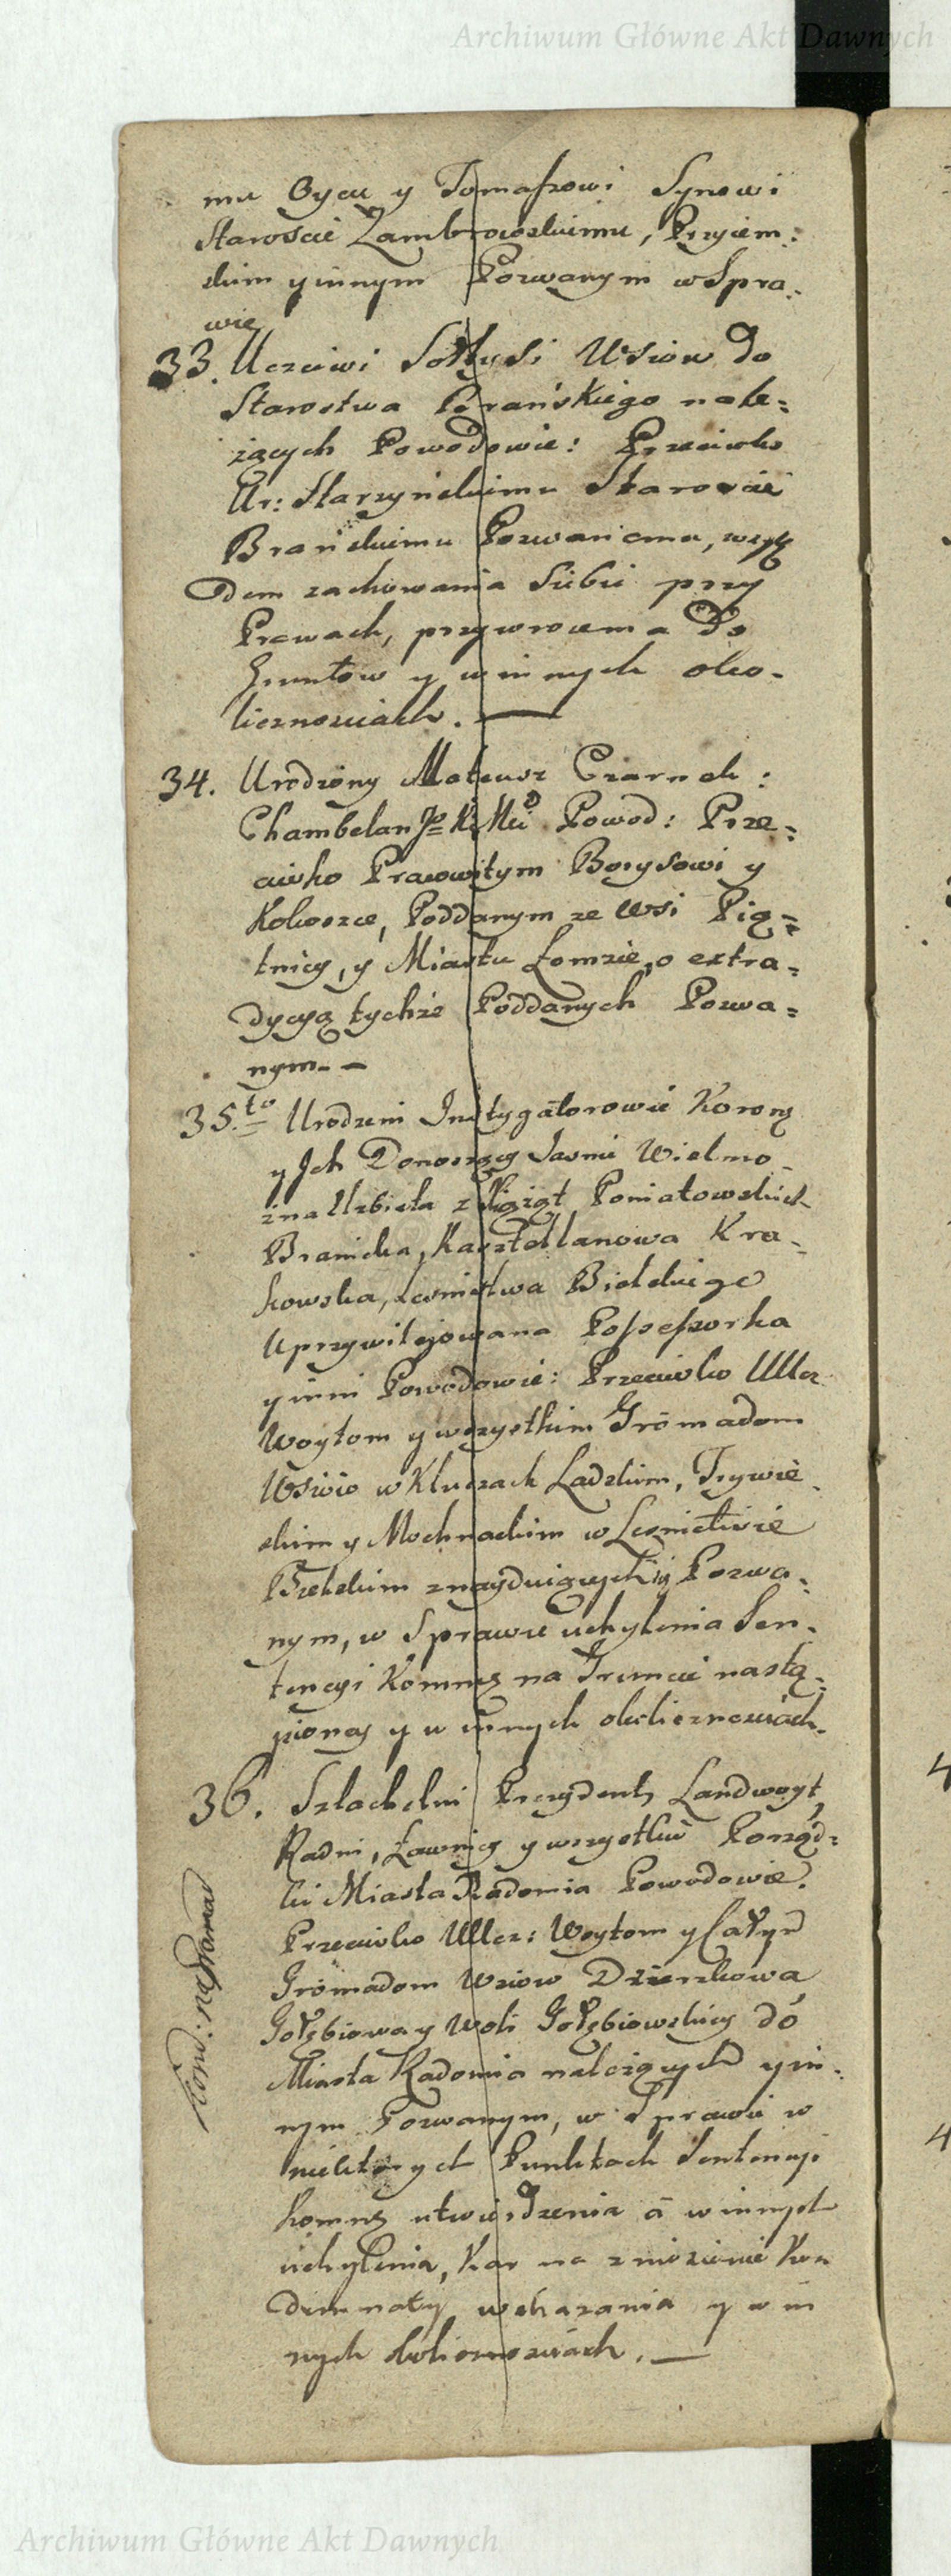 Archiwum Główne Akt Dawnych
mu Oycu y Tomaszowi Synowi
Staroscie Zambrowskiemu, Przyiem:
skim y innym Pozwanym w Spra-
wie
33. Uczciwi Sołtysi Wsiow do
Starostwa Brańskiego nale=
żących Powodowie: Przeciwko
Ur: Starzyńskiemu Staroscie
Brańskiemu Pozwanemu, wzglę
dem zachowania Siebie przy
Prawach, przywrocenia do
Gruntow y w innych oko-
licznosciach. —
34. Urodzony Mateusz Czarnek:
Chambelan J K Mci Powod: Prze=
ciwko Pracowitym Borysowi y
Kokoszce, Poddanym ze Wsi Pią=
tnicy, y Miastu Łomzie, o extra=
dycyą tychże Poddanych Pozwa=
nym. —
35.to Urodzeni Instygatorowie Koronn
y Ich Donoszący Jasnie Wielmo
żna Elzbieta z Xiążąt Poniatowskich
Branicka, Kasztellanowa Kra-
kowska, Lesnictwa Bielskiego
Uprzywilejowana Possessorka
y inni Powodowie: Przeciwko Ucz
Woytom y wszystkim Gromadom
Wsiow w Kluczach Ladzkim, Trywie
skim y Mochnackim w Lesnictwie
Bielskim znayduiących się Pozwa-
nym, w Sprawie uchylenia Sen-
tencyi Komnney na Gruncie nastą-
pioney y w innych okolicznosciach.
36. Szlachetni Prezydent, Landwoyt,
Radni, Ławnicy y wszystkie Porząd=
ki Miasta Radomia Powodowie.
Przeciwko Ucz: Woytom y Całym
Gromadom Wsiow Dzierzkowa
Gołębiowa y Woli Gołębiowskiey do
Miasta Radomia należących y in-
nym Pozwanym, w Sprawie w
niektorych Punktach Sentencyi
Komney utwierdzenia a w innych
uchylenia, Kar na zniesienie Kon
demnaty wskazania y w in
nych okolicznosciach. —
Kond: nastana
Archiwum Główne Akt Dawnych